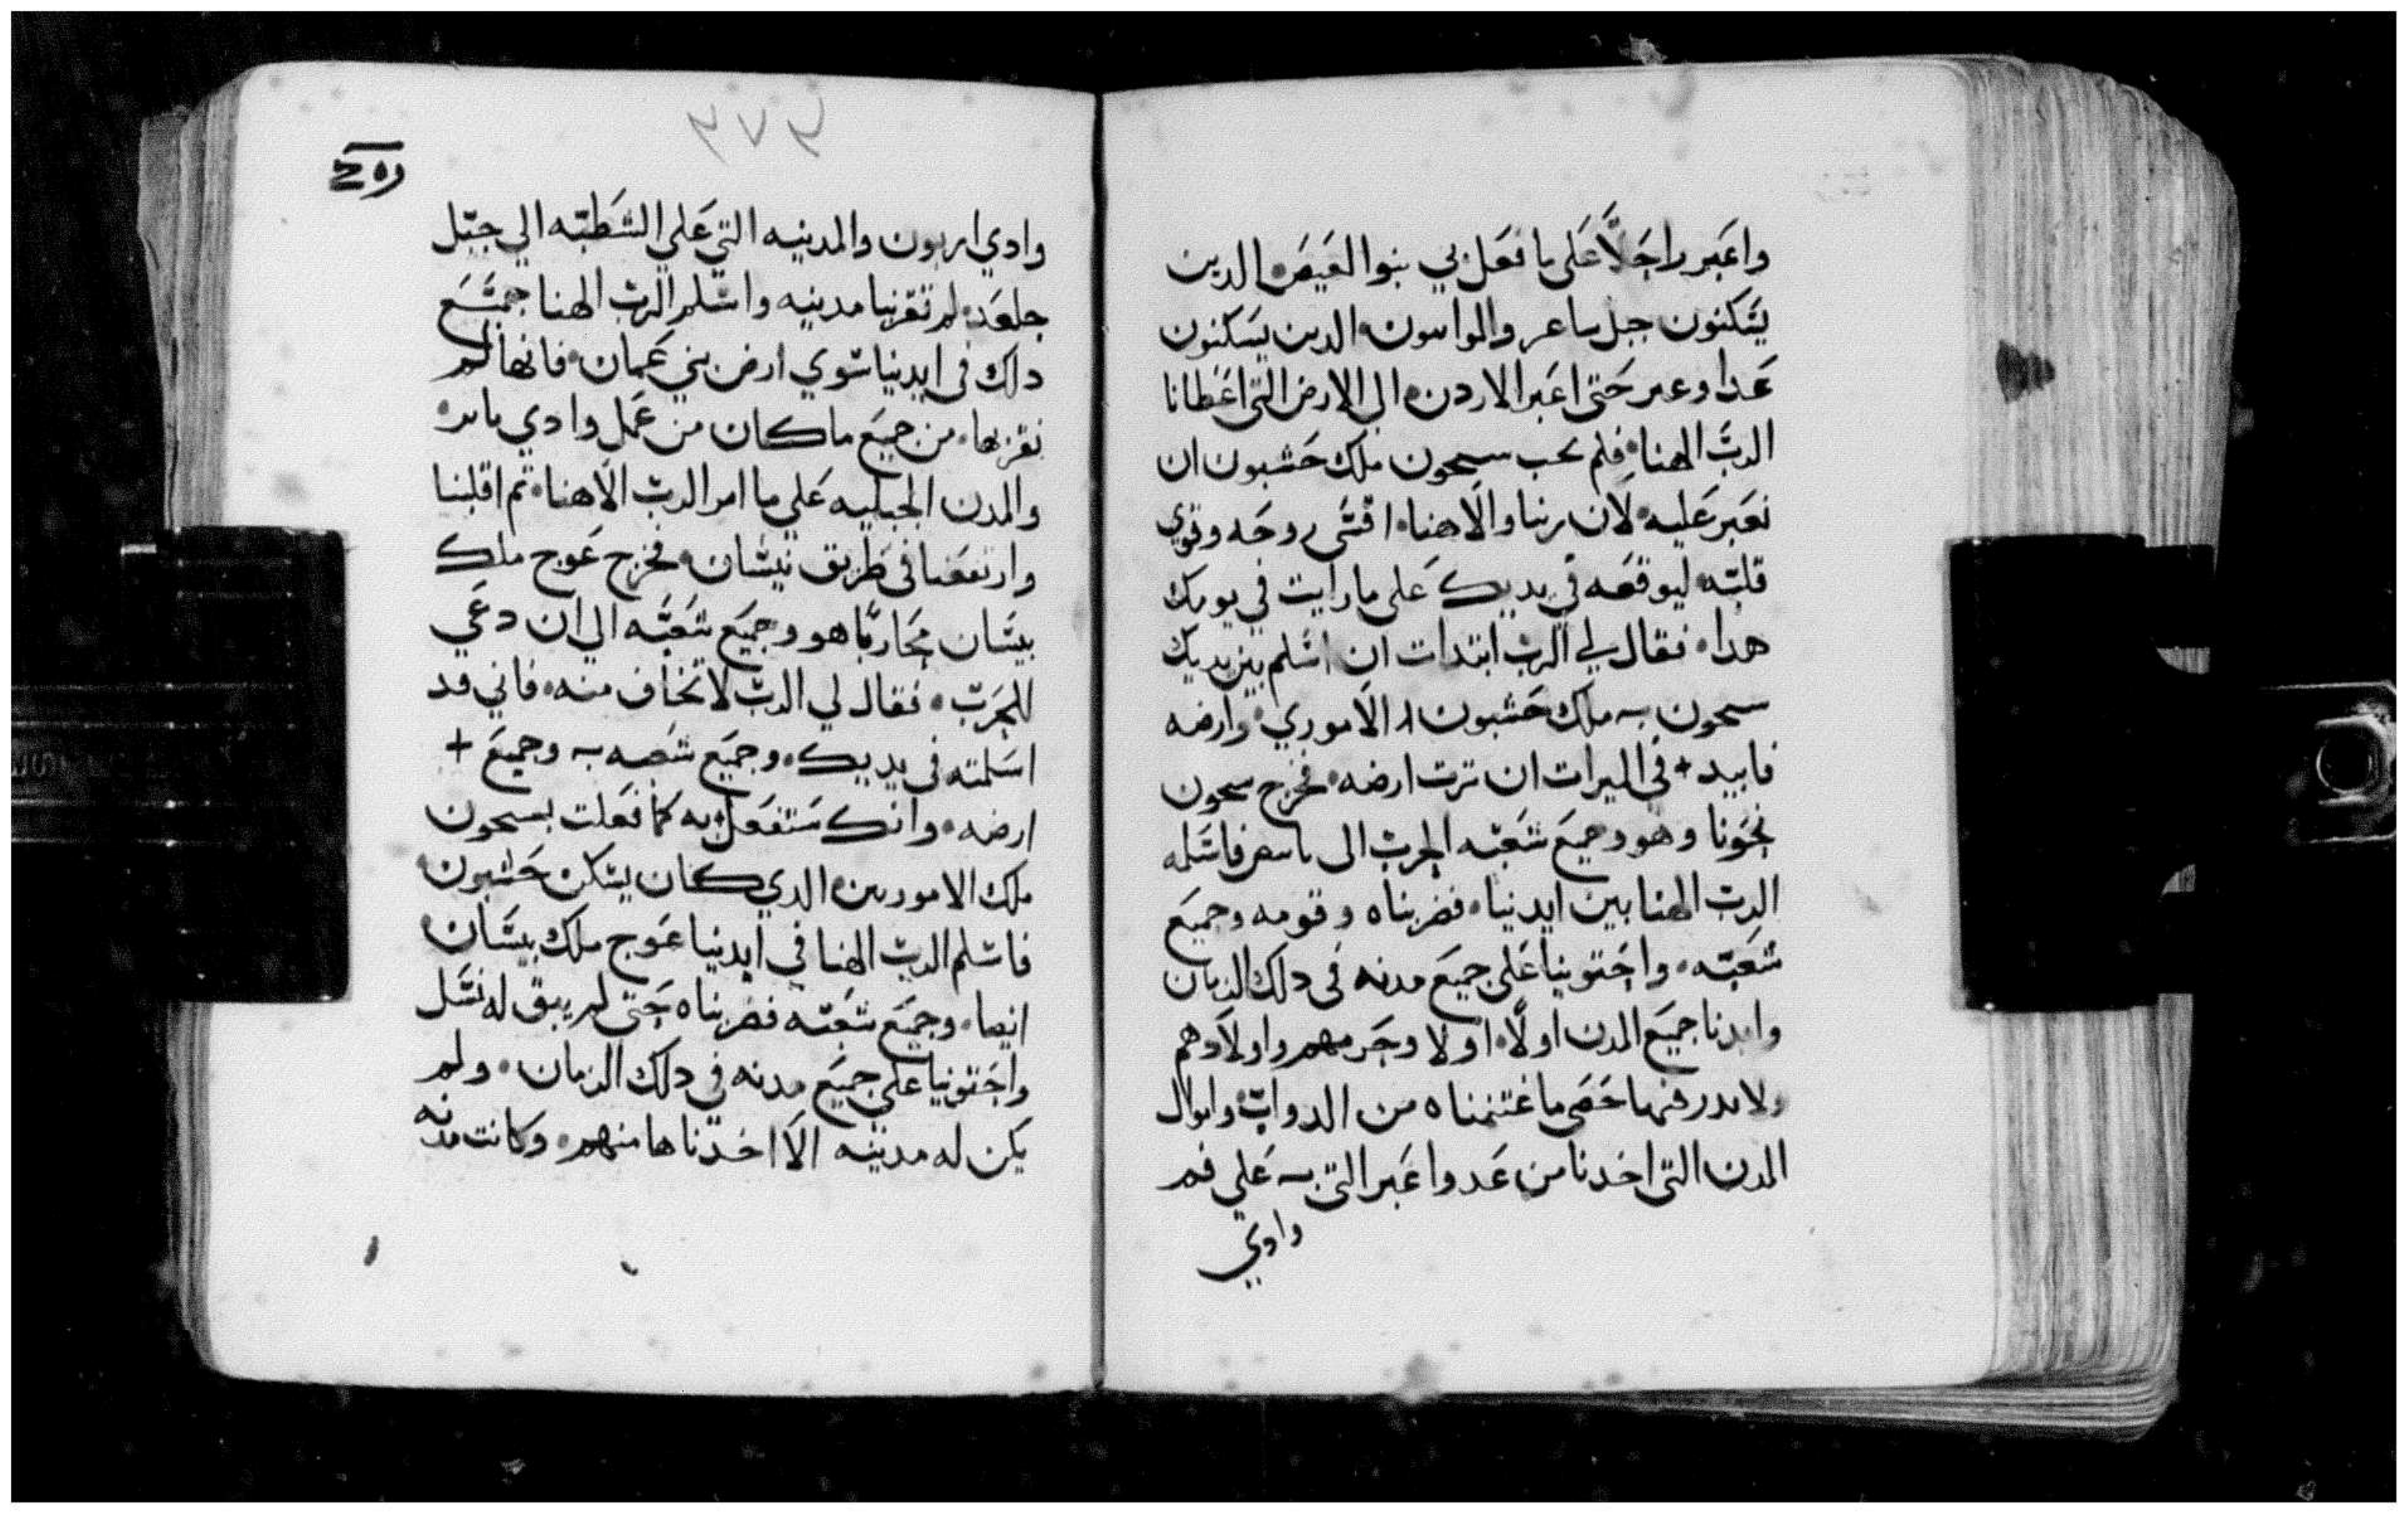 واعبر راجلا على ما فعل بي بنوا العيص الدين
يسكنون جبل ساعر والموابيون الدين يسكنون
عدا وعبر حتى اعبر الاردن الى الارض التى اعطانا
الرب الهنا فلم يحب سيحون ملك حشبون ان
نعبر عليه لان ربنا والاهنا اقسى روحه وقوي
قلبه ليوقعه في يديك على ما رايت في يومك
هدا فقال لي الرب ابتدات ان اسلم بين يديك
سيحون ملك حشبون الاموري وارضه
فابيد في الميرات ان ترت ارضه فخرج سيحون
نحونا وهو وجميع شعبه الحرب الى فاسلمه
الرب الهنا بين ايدينا فضربناه وقومه وجميع
شعبه واحتوينا على جميع مدنه في دلك الزمان
وابدنا جميع المدن اولا اولا وحريمهم واولادهم
ولا فيها ما غتنمناه من الدواب واموال
المدن التى اخدنا من عدوا عبر التي على فم
وادي
٣٧٣
وادي اربون والمدينه التي على الشطبه الي جبل
جلعد لم تقربنا مدينه واسلم الرب الهنا جميع
دلك في ايدينا سوي ارض بني عمان فانها لم
نقربها من جميع ما كان من عمل وادي
والمدن الجبليه على ما امر الرب الاهنا تم اقلبنا
وارتفعنا في طريق نيسان فخرج عوج ملك
بيسان محاربا هو وجميع شعبه الي ان دعي
للحرب فقال لي الرب لا تخاف منه فاني قد
اسلمته في يديك وجميع شعبه وجميع +
ارضه وانك ستفعل به كما فعلت بسيحون
ملك الاموريين الدي كان يسكن حشبون
فاسلم الرب الهنا في ايدينا عوج ملك بيسان
ايضا وجميع شعبه فضربناه حتى لم يبق له نسل
واحتوينا على جميع مدنه في دلك الزمان ولم
يكن له مدينه الا اخدناها منهم وكانت مدنه